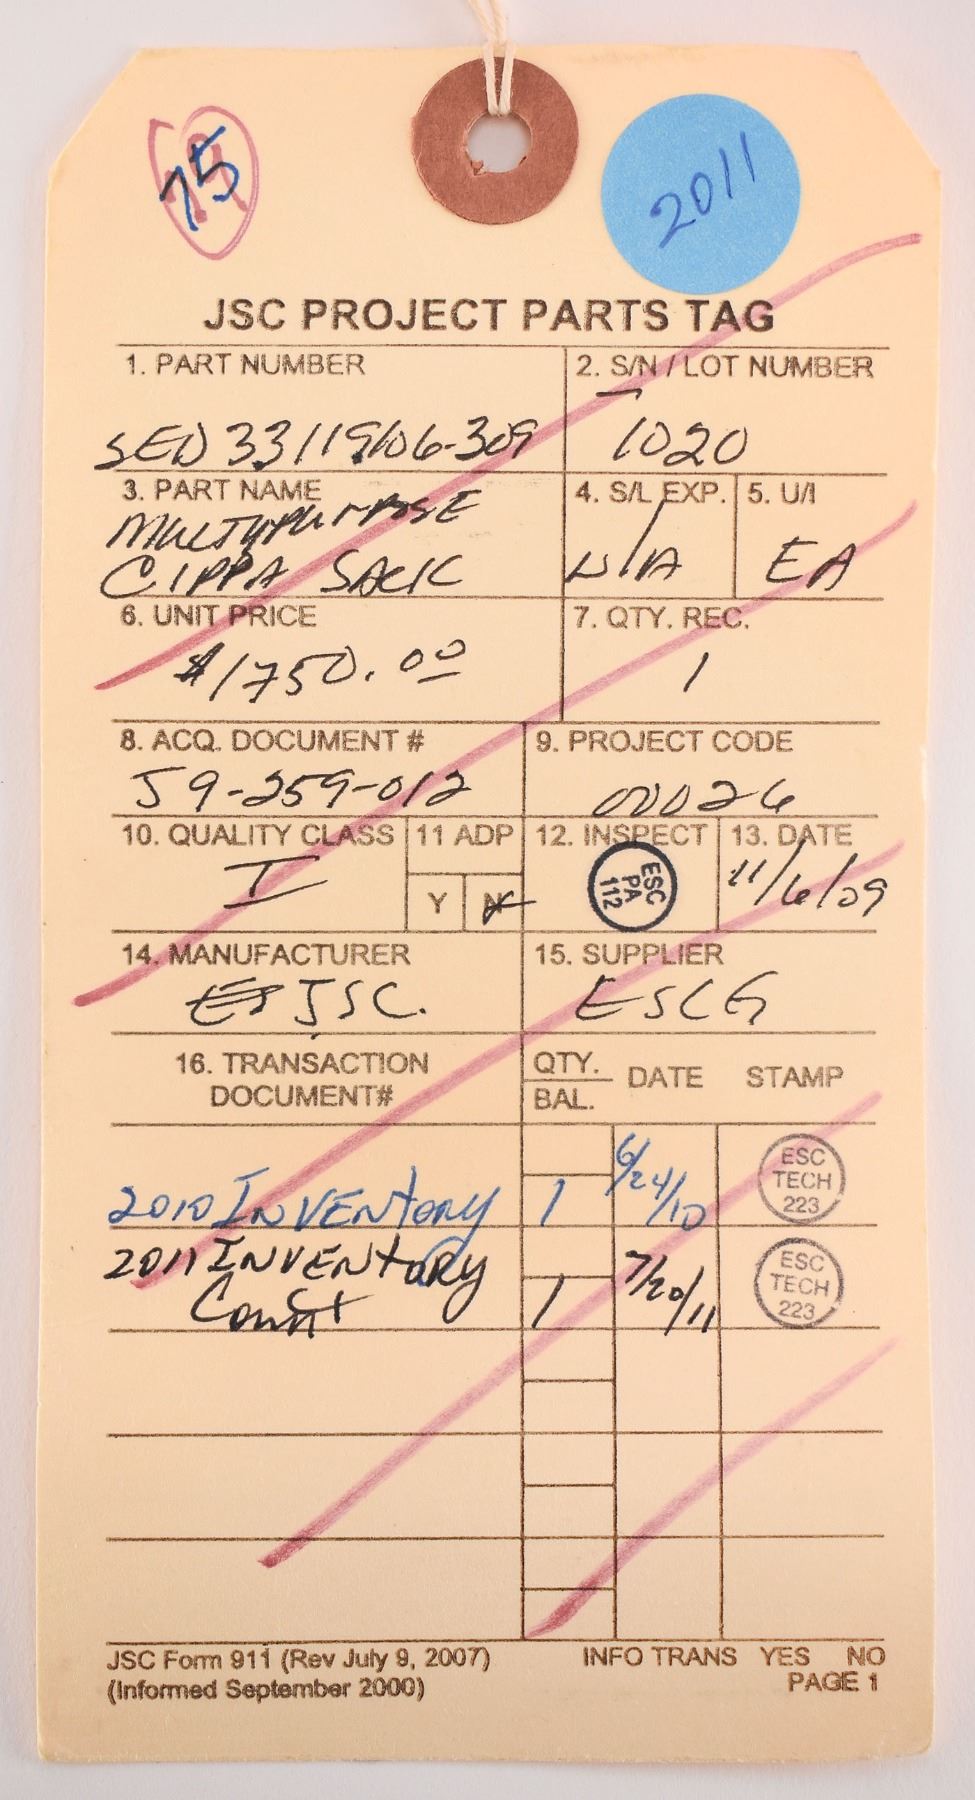 75
2011
JSC PROJECT PARTS TAG
1. PART NUMBER
2. S/N / LOT NUMBER
SED 33119106-309
1020
3. PART NAME
4. S/L EXP.
5. U/I
MULTIPURPOSE
CIPPA SACK
N/A
EA
6. UNIT PRICE
7. QTY. REC.
$1750.00
1
8. ACQ. DOCUMENT #
9. PROJECT CODE
J9-259-012
00026
10. QUALITY CLASS
11 ADP
12. INSPECT
13. DATE
I
Y N
ESC
PA
112
11/6/09
14. MANUFACTURER
15. SUPPLIER
JSC.
ESCG
16. TRANSACTION
DOCUMENT#
QTY.
BAL.
DATE
STAMP
2010 INVENTORY
1
6/24/10
ESC
TECH
223
2011 INVENTORY
Count
1
7/20/11
ESC
TECH
223
JSC Form 911 (Rev July 9, 2007)
INFO TRANS YES NO
(Informed September 2000)
PAGE 1